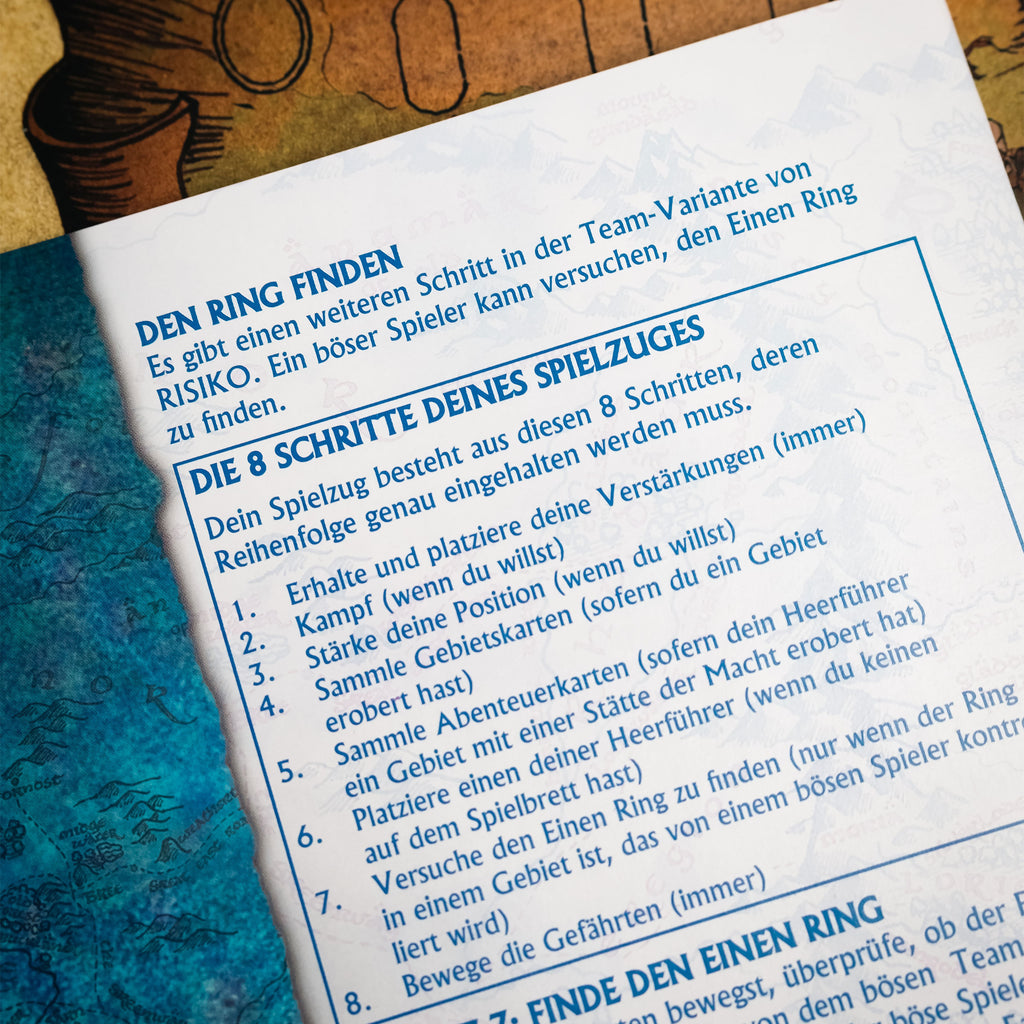 DEN RING FINDEN
Es gibt einen weiteren Schritt in der Team-Variante von
RISIKO. Ein böser Spieler kann versuchen, den Einen Ring
zu finden.
DIE 8 SCHRITTE DEINES SPIELZUGES
Dein Spielzug besteht aus diesen 8 Schritten, deren
Reihenfolge genau eingehalten werden muss.
1. Erhalte und platziere deine Verstärkungen (immer)
2. Kampf (wenn du willst)
3. Stärke deine Position (wenn du willst)
4. Sammle Gebietskarten (sofern du ein Gebiet
erobert hast)
5. Sammle Abenteuerkarten (sofern dein Heerführer
ein Gebiet mit einer Stätte der Macht erobert hat)
6. Platziere einen deiner Heerführer (wenn du keinen
auf dem Spielbrett hast)
7. Versuche den Einen Ring zu finden (nur wenn der Ring
in einem Gebiet ist, das von einem bösen Spieler kontro
liert wird)
8. Bewege die Gefährten (immer)
7: FINDE DEN EINEN RING
bewegst, überprüfe, ob der
von dem bösen Team
böse Spiele